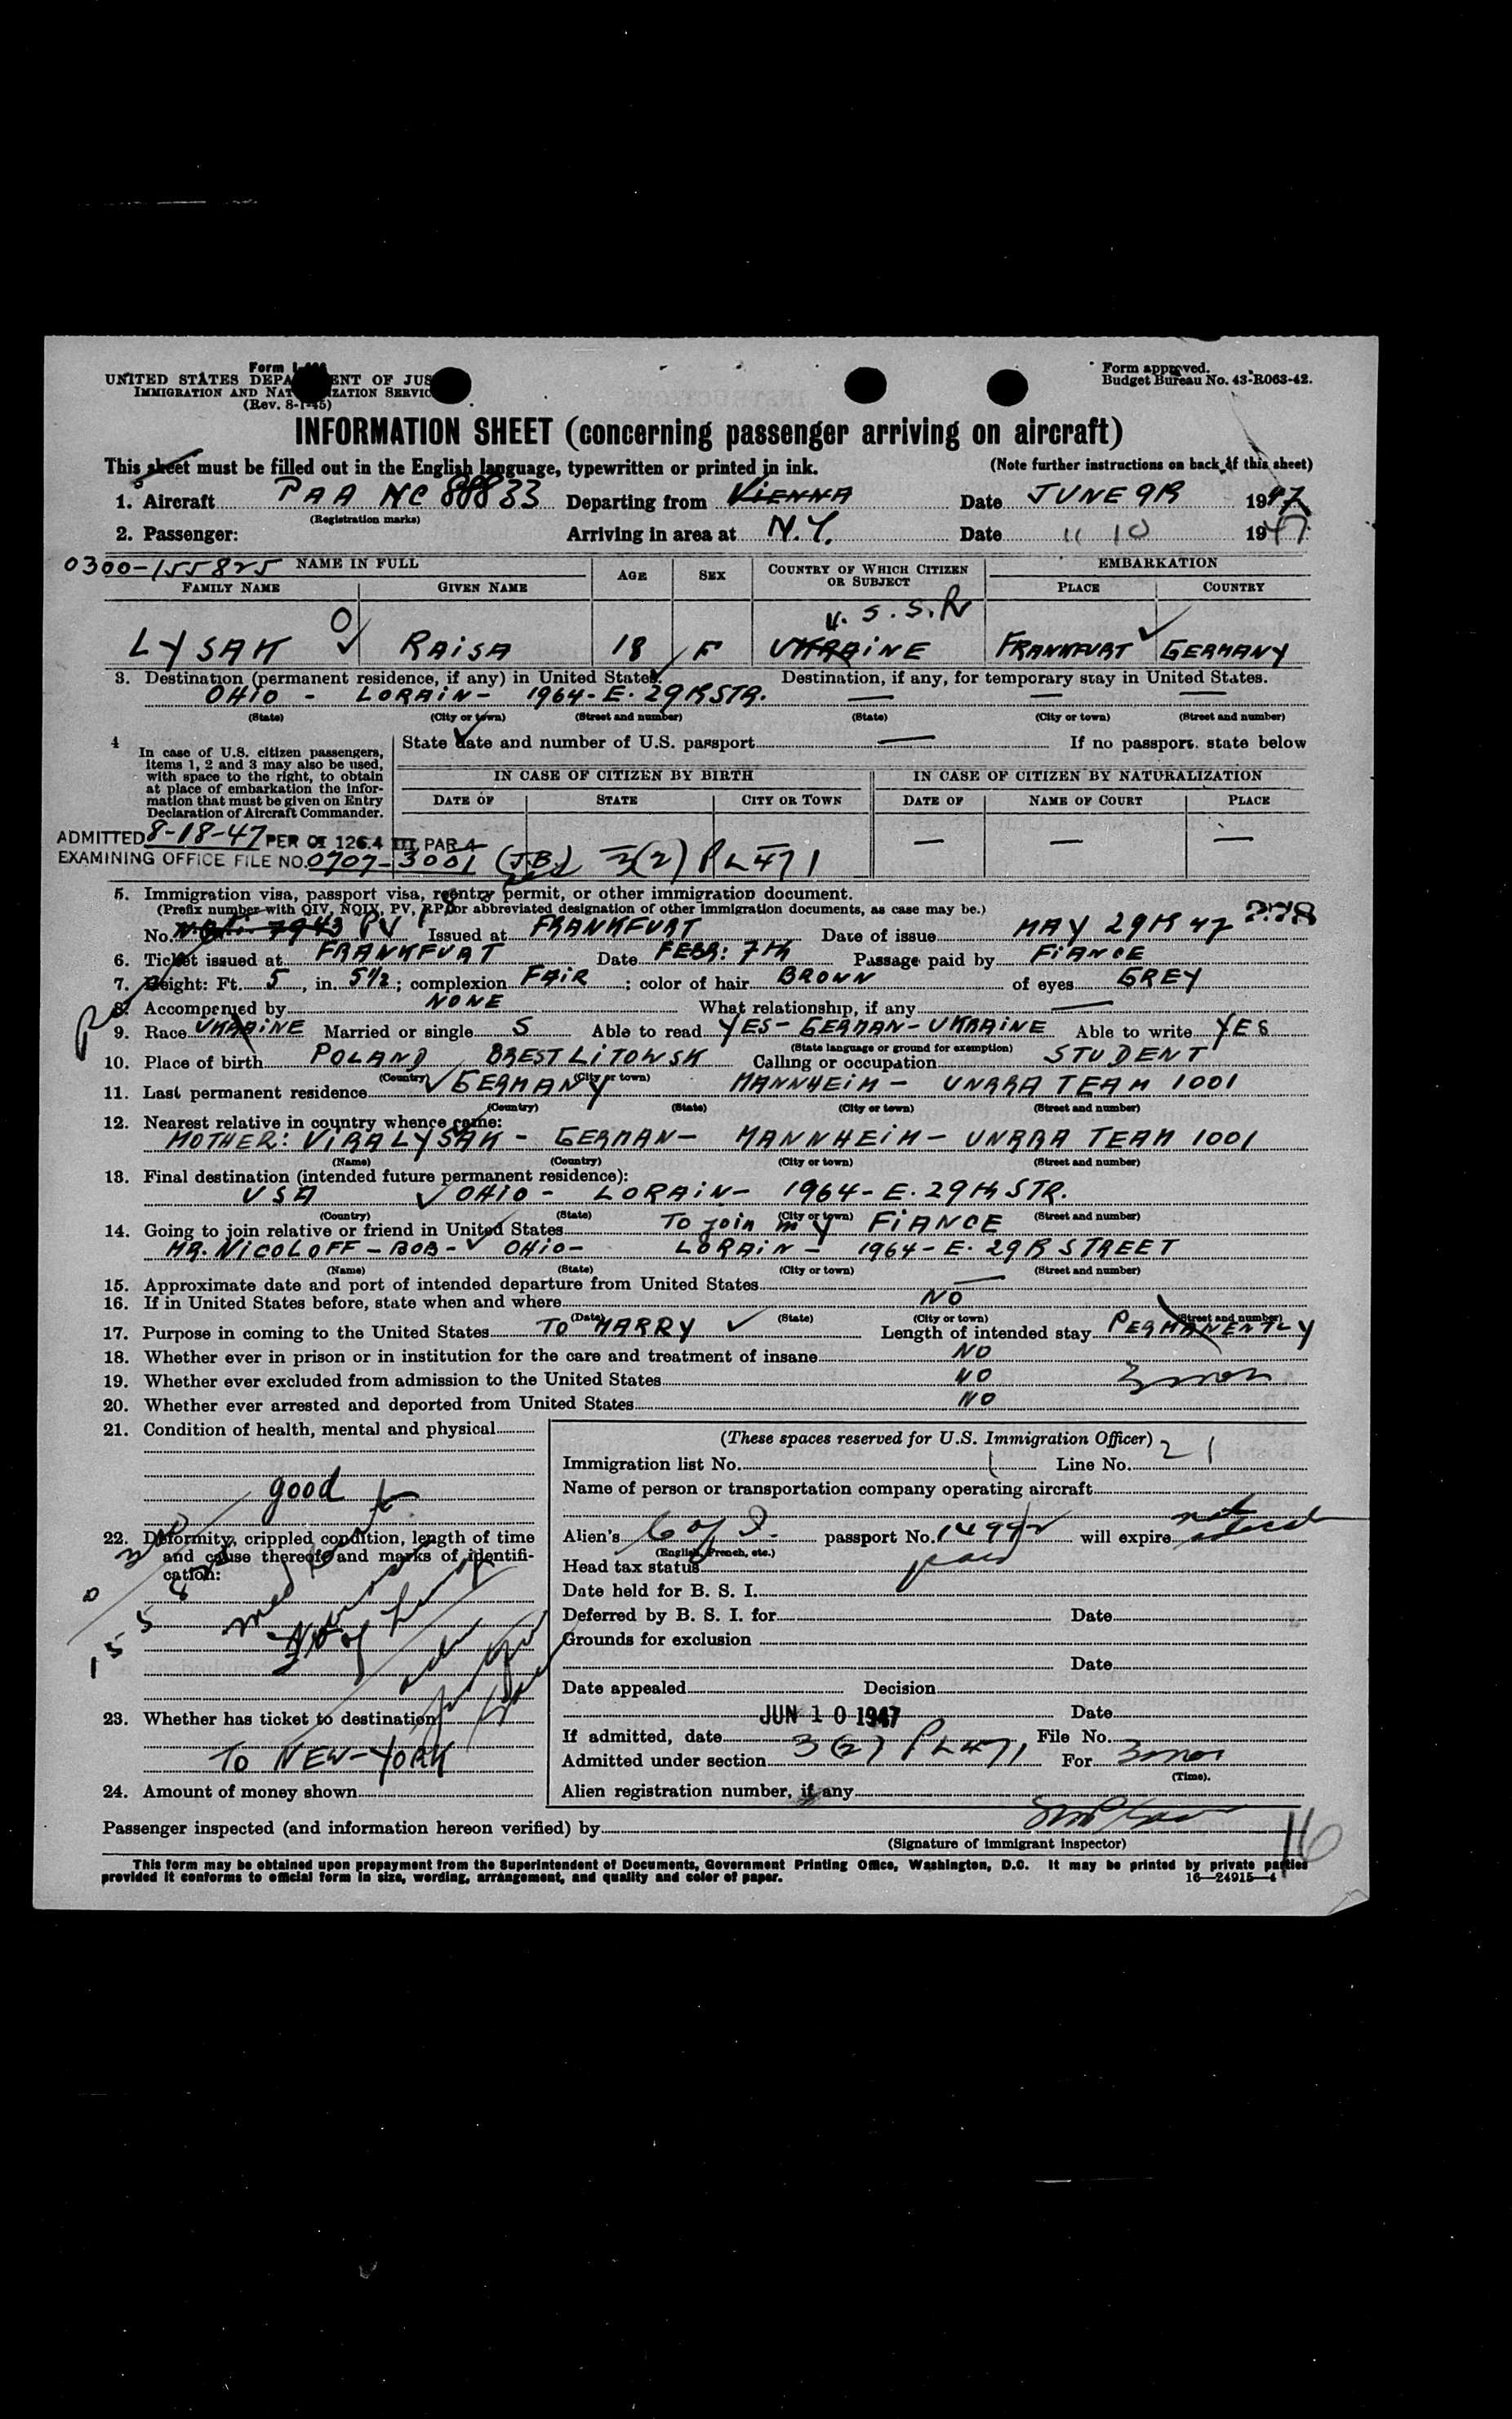 Form
UNITED STATES DEPA ENT OF JUS
IMMIGRATION AND NAT IZATION SERVIC
(Rev. 8-1-45)
Form approved.
Budget Bureau No. 43-R063-42.
INFORMATION SHEET (concerning passenger arriving on aircraft)
This sheet must be filled out in the English language, typewritten or printed in ink. (Note further instructions on back of this sheet)
1. Aircraft PAA NC 88833 Departing from VIENNA Date JUNE 9th 1947
(Registration marks)
2. Passenger: Arriving in area at N.Y. Date " 10 1947
0300-155825 NAME IN FULL AGE SEX COUNTRY OF WHICH CITIZEN OR SUBJECT EMBARKATION
FAMILY NAME GIVEN NAME PLACE COUNTRY
U.S.S.R
LYSAK RAISA 18 F UKRAINE FRANKFURT GERMANY
3. Destination (permanent residence, if any) in United States. Destination, if any, for temporary stay in United States.
OHIO - LORAIN - 1964 - E. 29th STR. — — —
(State) (City or town) (Street and number) (State) (City or town) (Street and number)
4 In case of U.S. citizen passengers, items 1, 2 and 3 may also be used, with space to the right, to obtain at place of embarkation the information that must be given on Entry Declaration of Aircraft Commander.
State date and number of U.S. passport — If no passport, state below
IN CASE OF CITIZEN BY BIRTH IN CASE OF CITIZEN BY NATURALIZATION
DATE OF STATE CITY OR TOWN DATE OF NAME OF COURT PLACE
— — —
ADMITTED 8-18-47 PER OI 126.4 III PAR 4
EXAMINING OFFICE FILE NO. 0707-3001 (J.B.) 3(2) PL 471
5. Immigration visa, passport visa, reentry permit, or other immigration document.
(Prefix number with QIV, NQIV, PV, RP, or abbreviated designation of other immigration documents, as case may be.)
No. PV Issued at FRANKFURT Date of issue MAY 29th 47
6. Ticket issued at FRANKFURT Date FEBR: 7th Passage paid by FIANCE
7. Height: Ft. 5, in. 5 1/2; complexion FAIR; color of hair BROWN of eyes GREY
8. Accompanied by NONE What relationship, if any —
9. Race UKRAINE Married or single S Able to read YES - GERMAN - UKRAINE Able to write YES
(State language or ground for exemption)
10. Place of birth POLAND BREST LITOWSK Calling or occupation STUDENT
(Country) (City or town)
11. Last permanent residence GERMANY MANNHEIM - UNRRA TEAM 1001
(Country) (State) (City or town) (Street and number)
12. Nearest relative in country whence came:
MOTHER: VIRA LYSAK - GERMAN - MANNHEIM - UNRRA TEAM 1001
(Name) (Country) (City or town) (Street and number)
13. Final destination (intended future permanent residence):
USA OHIO - LORAIN - 1964 - E. 29th STR.
(Country) (State) (City or town) (Street and number)
14. Going to join relative or friend in United States To join my FIANCE
MR. NICOLOFF - BOB - OHIO - LORAIN - 1964 - E. 29th STREET
(Name) (State) (City or town) (Street and number)
15. Approximate date and port of intended departure from United States —
16. If in United States before, state when and where NO
(Date) (State) (City or town) (Street and number)
17. Purpose in coming to the United States TO MARRY Length of intended stay PERMANENTLY
18. Whether ever in prison or in institution for the care and treatment of insane NO
19. Whether ever excluded from admission to the United States NO 3 mos
20. Whether ever arrested and deported from United States NO
21. Condition of health, mental and physical
good
22. Deformity, crippled condition, length of time and cause thereof and marks of identification:
23. Whether has ticket to destination
TO NEW-YORK
24. Amount of money shown
(These spaces reserved for U.S. Immigration Officer)
Immigration list No. 1 Line No. 21
Name of person or transportation company operating aircraft
Alien's C of I passport No. will expire
(English, French, etc.)
Head tax status paid
Date held for B. S. I.
Deferred by B. S. I. for Date
Grounds for exclusion
Date
Date appealed Decision
JUN 10 1947 Date
If admitted, date File No.
Admitted under section 3(2) PL 471 For 3 mos
(Time).
Alien registration number, if any
Passenger inspected (and information hereon verified) by
(Signature of immigrant inspector)
16
This form may be obtained upon prepayment from the Superintendent of Documents, Government Printing Office, Washington, D.C. It may be printed by private parties
provided it conforms to official form in size, wording, arrangement, and quality and color of paper. 16—24915-4